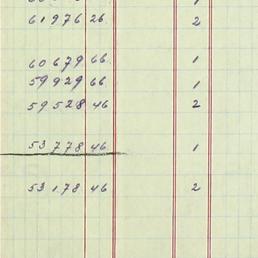 61976 26 2
60679 66. 1
59929 66. 1
59528 46 2
53778 46 1
53178 46 2